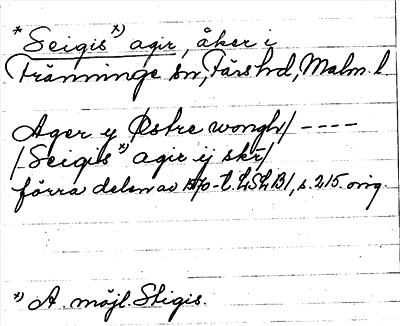 * Seigis *) agir, åker i
Tränninge sn, Färs hd, Malm. l
Ager y Østre wongh/ ----
/Seigis *) agir ij skr/
förra delen av 1570-t. LSLB1, s. 215. orig.
*) A. möjl. Stigis.